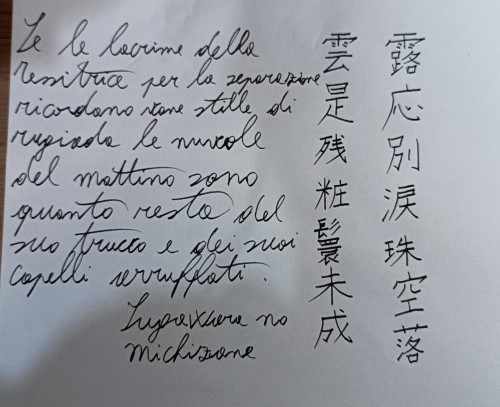 Se le lacrime della
tessitrice per la separazione
ricordano vane stille di
rugiada le nuvole
del mattino sono
quanto resta del
suo trucco e dei suoi
capelli arruffati.
Sugawara no
Michizane
露応別涙珠空落
雲是残粧鬟未成